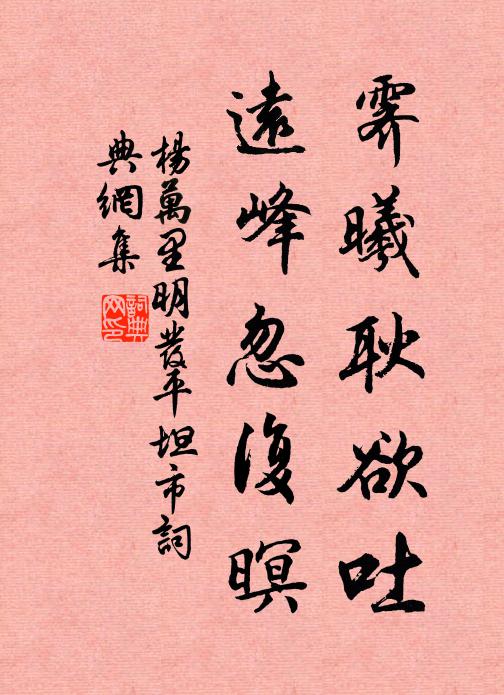 霽曦耿欲吐
遠峰忽復暝
楊萬里明發平坦市詞
典網集
詞典网印